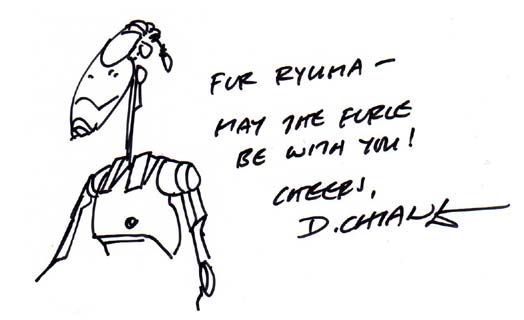 FOR RYUMA —
MAY THE FORCE
BE WITH YOU!
CHEERS,
D. CHIANG